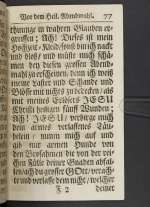 Vor dem Heil. Abendmahl. 77
thunge in wahren Glauben er-
greiffen; Ach! Dieses ist mein
Hochzeit-Kleid, sonst bin ich nackt
und bloß, und müste mich schä-
men bey diesem grossen Abend-
mahl zu erscheinen, denn ich weiß
meine Laster und Schande und
Blösse mit nichts zu bedecken, als
mit meines Erlösers JESU
Christi heiligsten fünff Wunden;
Ach! JESU, verbirge mich
dem armes verlassenes
und nimm mich auf mit
mit armen Hunde von
den Brosamen, die von der
chen Fülle deiner Gnaden abfal-
len, ach du grosser GOtt, verach-
te und verlasse dem nicht, welcher
F 2 deiner